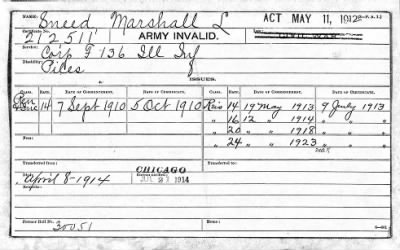 NAME: Sneed Marshall L ACT MAY 11, 1912
Certificate No. 212511 ARMY INVALID. CIVIL WAR
Service: Corp F 136 Ill Inf
Disability: Piles
ISSUES.
CLASS. RATE. DATE OF COMMENCEMENT. DATE OF CERTIFICATE. CLASS. RATE. DATE OF COMMENCEMENT. DATE OF CERTIFICATE.
14 7 Sept 1910 5 Oct 1910 Reis 14 19 May 1913 9 July 1913
" 16 12 " 1914 " " "
" 20 " " 1918 " " "
" 24 " " 1923 " " "
Transferred from: Transferred to:
CHICAGO
April 8-1914 1914
Former Roll No. 30051